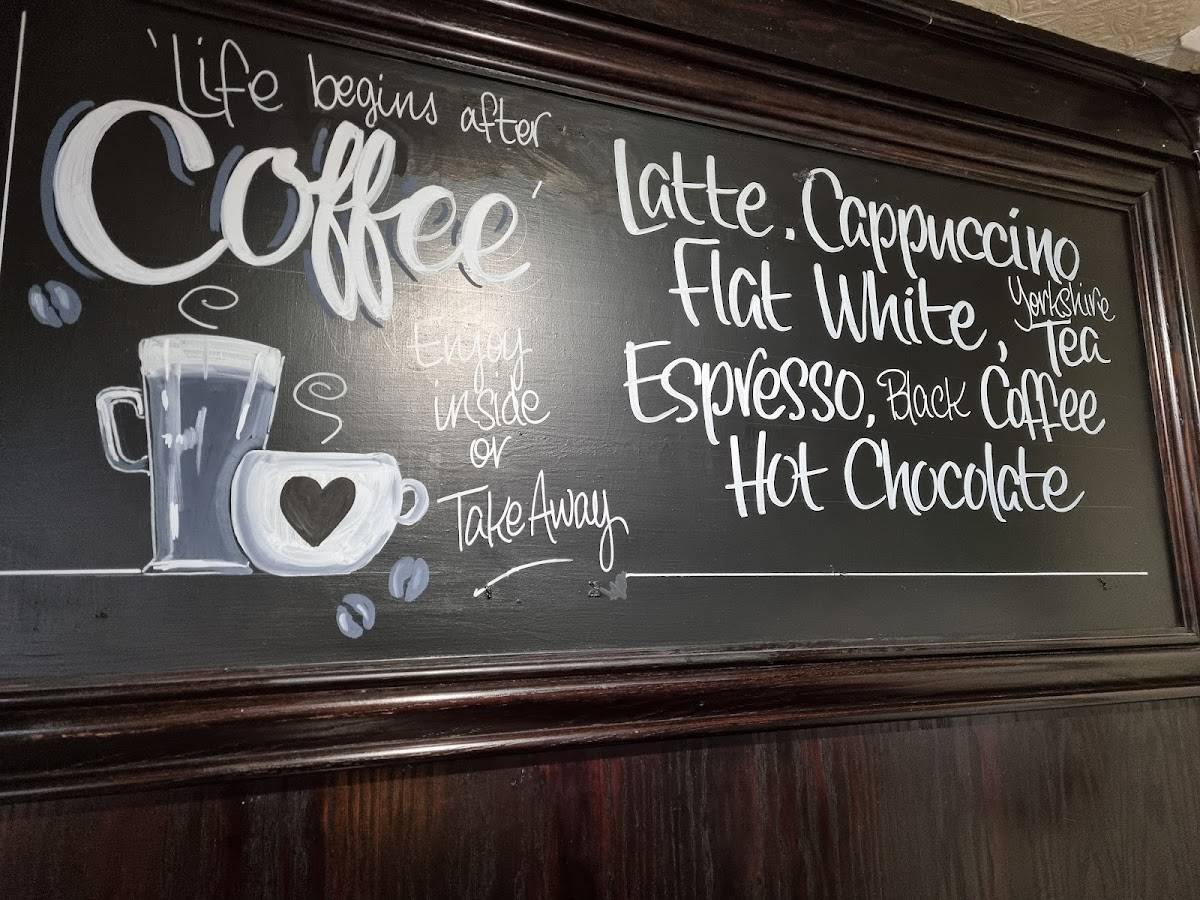 'Life begins after
Coffee'
Enjoy
inside
or
Take Away
Latte. Cappuccino
Flat White, Yorkshire Tea
Espresso, Black Coffee
Hot Chocolate